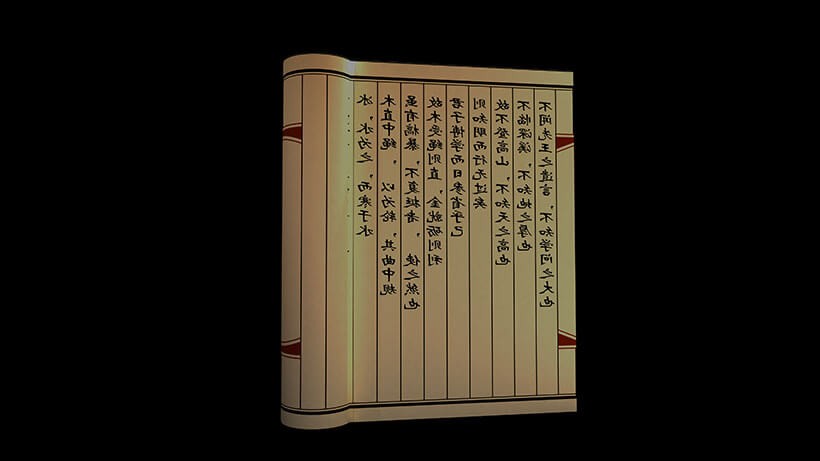 冰，水为之，而寒于水
木直中绳，以为轮，其曲中规
虽有槁暴，不复挺者，使之然也
故木受绳则直，金就砺则利
君子博学而日参省乎己
则知明而行无过矣
故不登高山，不知天之高也
不临深溪，不知地之厚也
不闻先王之遗言，不知学问之大也